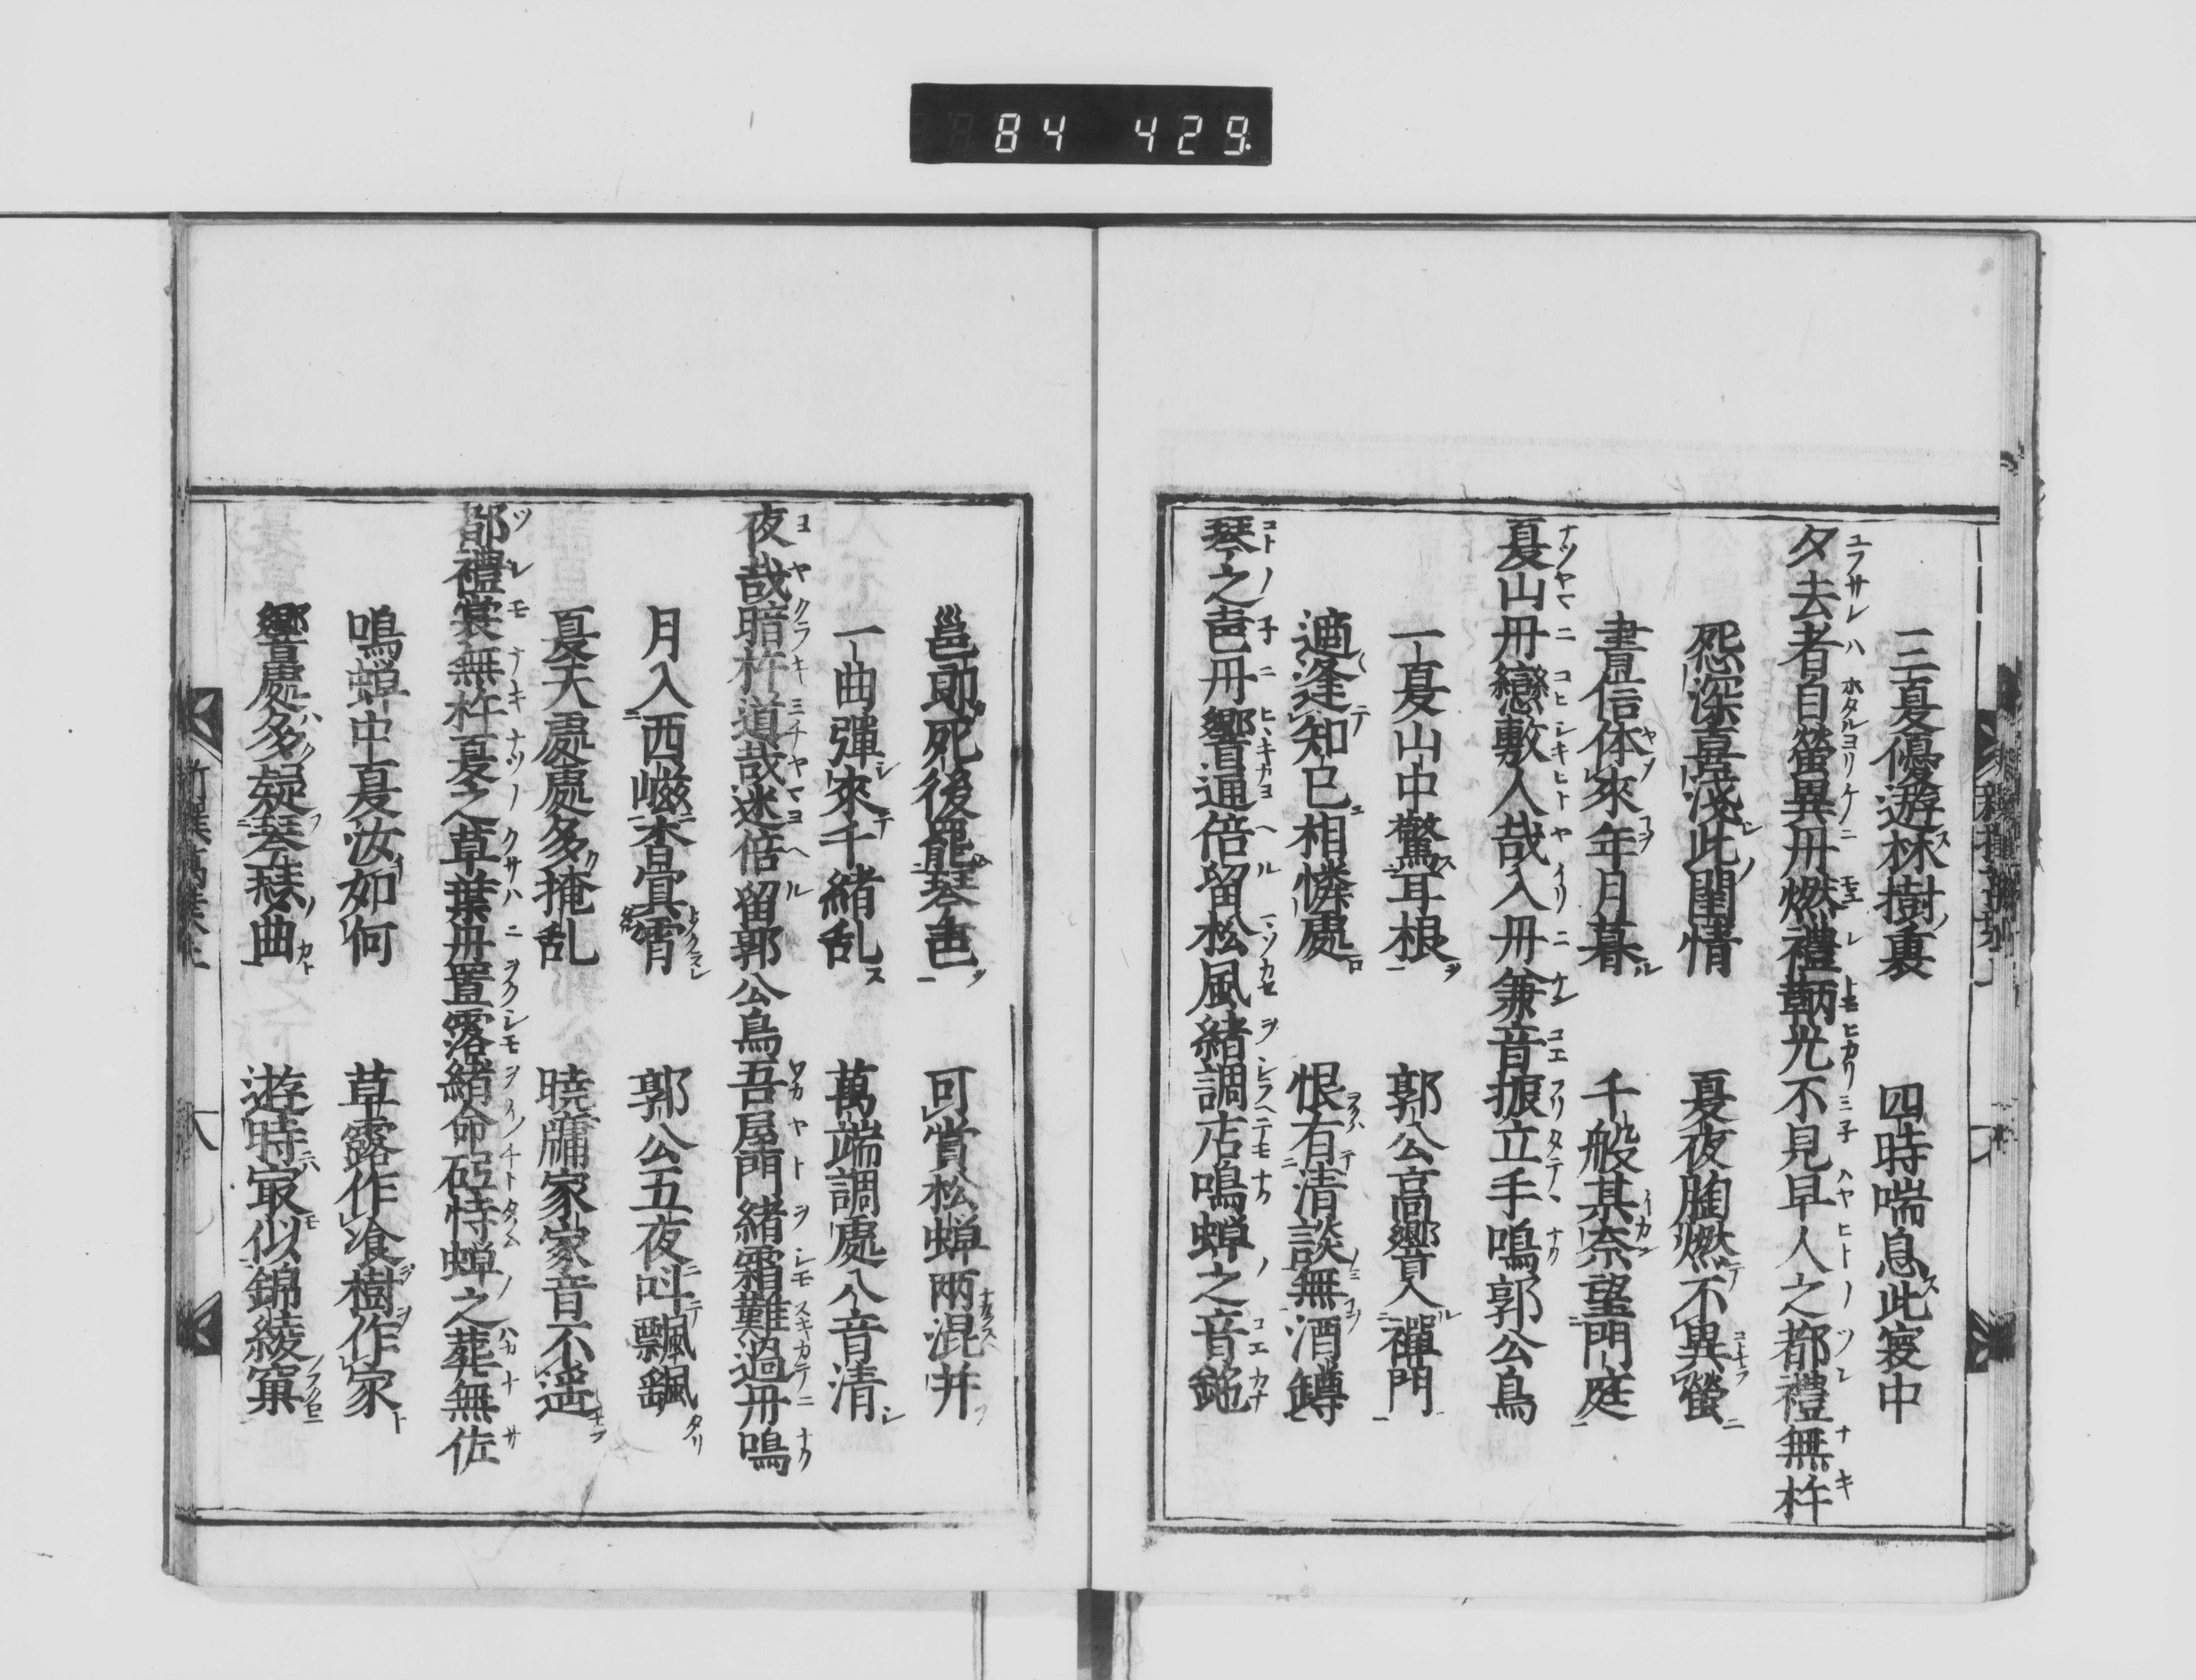 84 429
三夏優遊林樹裏 四時喘息此寰中
夕去者自螢異丹燃禮鞆光不見早人之都禮無杵
怨深喜淺此閨情 夏夜胸燃不異螢
書信休來年月暮 千般其奈望門庭
夏山丹戀敷人哉入丹兼音振立手鳴郭公鳥
一夏山中驚耳根 郭公高響入禪門
適逢知已相憐處 恨有清談無酒罇
琴之聲丹響通倍留松風緒調店鳴蝉之音鉇
邕郎死後罷琴聲 可賞松蝉兩混并
一曲彈來千緒乱 萬端調處八音清
夜哉暗杵道哉迷倍留郭公鳥吾屋門緒霜難過丹鳴
月入西嵫杳冥霄 郭公五夜叫飄颻
夏天處處多掩乱 曉牖家家音不遥
都禮裳無杵夏之草葉丹置露緒命砥恃蝉之葬無佐
鳴蝉中夏汝如何 草露作飡樹作家
響處多疑琴瑟曲 遊時最似錦綾窠
新撰萬葉上